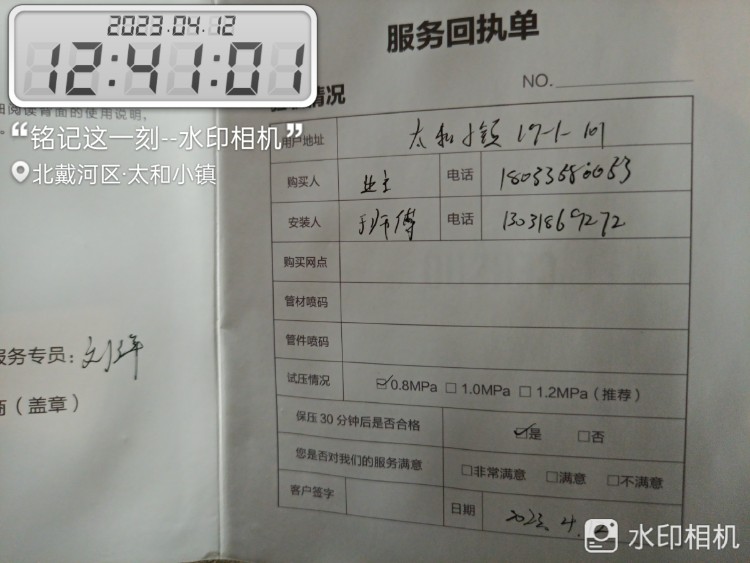 2023.04.12
12:41:01
“铭记这一刻--水印相机”
北戴河区·太和小镇
细阅读背面的使用说明,
服务专员:
商(盖章)
服务回执单
NO.
情况
用户地址 太和小镇 17-1-101
购买人 业主 电话
安装人 于师傅 电话 13031869272
购买网点
管材喷码
管件喷码
试压情况 ☑0.8MPa □1.0MPa □1.2MPa(推荐)
保压30分钟后是否合格 ☑是 □否
您是否对我们的服务满意 □非常满意 □满意 □不满意
客户签字 日期 2023.4.
水印相机